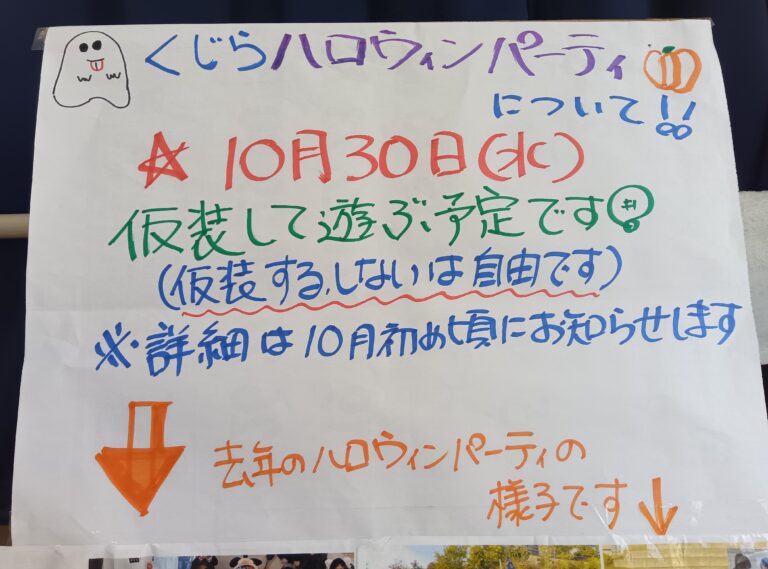 くじらハロウィンパーティ
について!!
☆10月30日(水)
仮装して遊ぶ予定です!!
(仮装する、しないは自由です)
※詳細は10月初め頃にお知らせします
去年のハロウィンパーティの
様子です↓